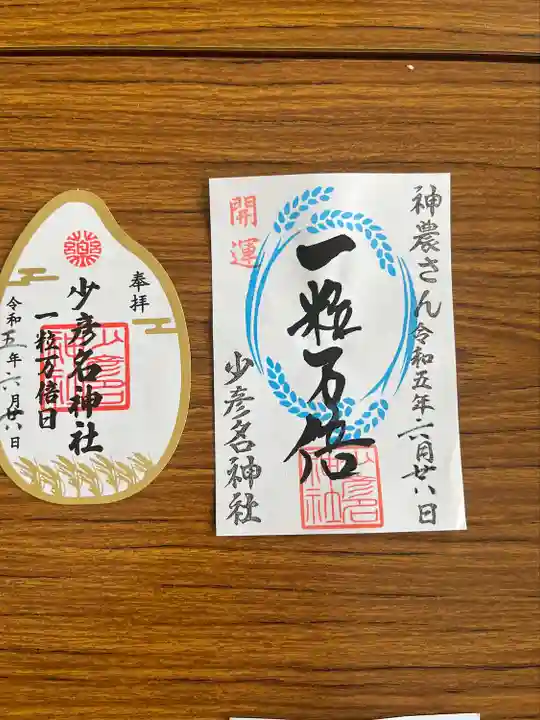 神農さん 令和五年六月廿八日
一粒万倍
開運
少彦名神社
少彦名神社
奉拝
少彦名神社
一粒万倍日
少彦名神社
令和五年六月廿八日